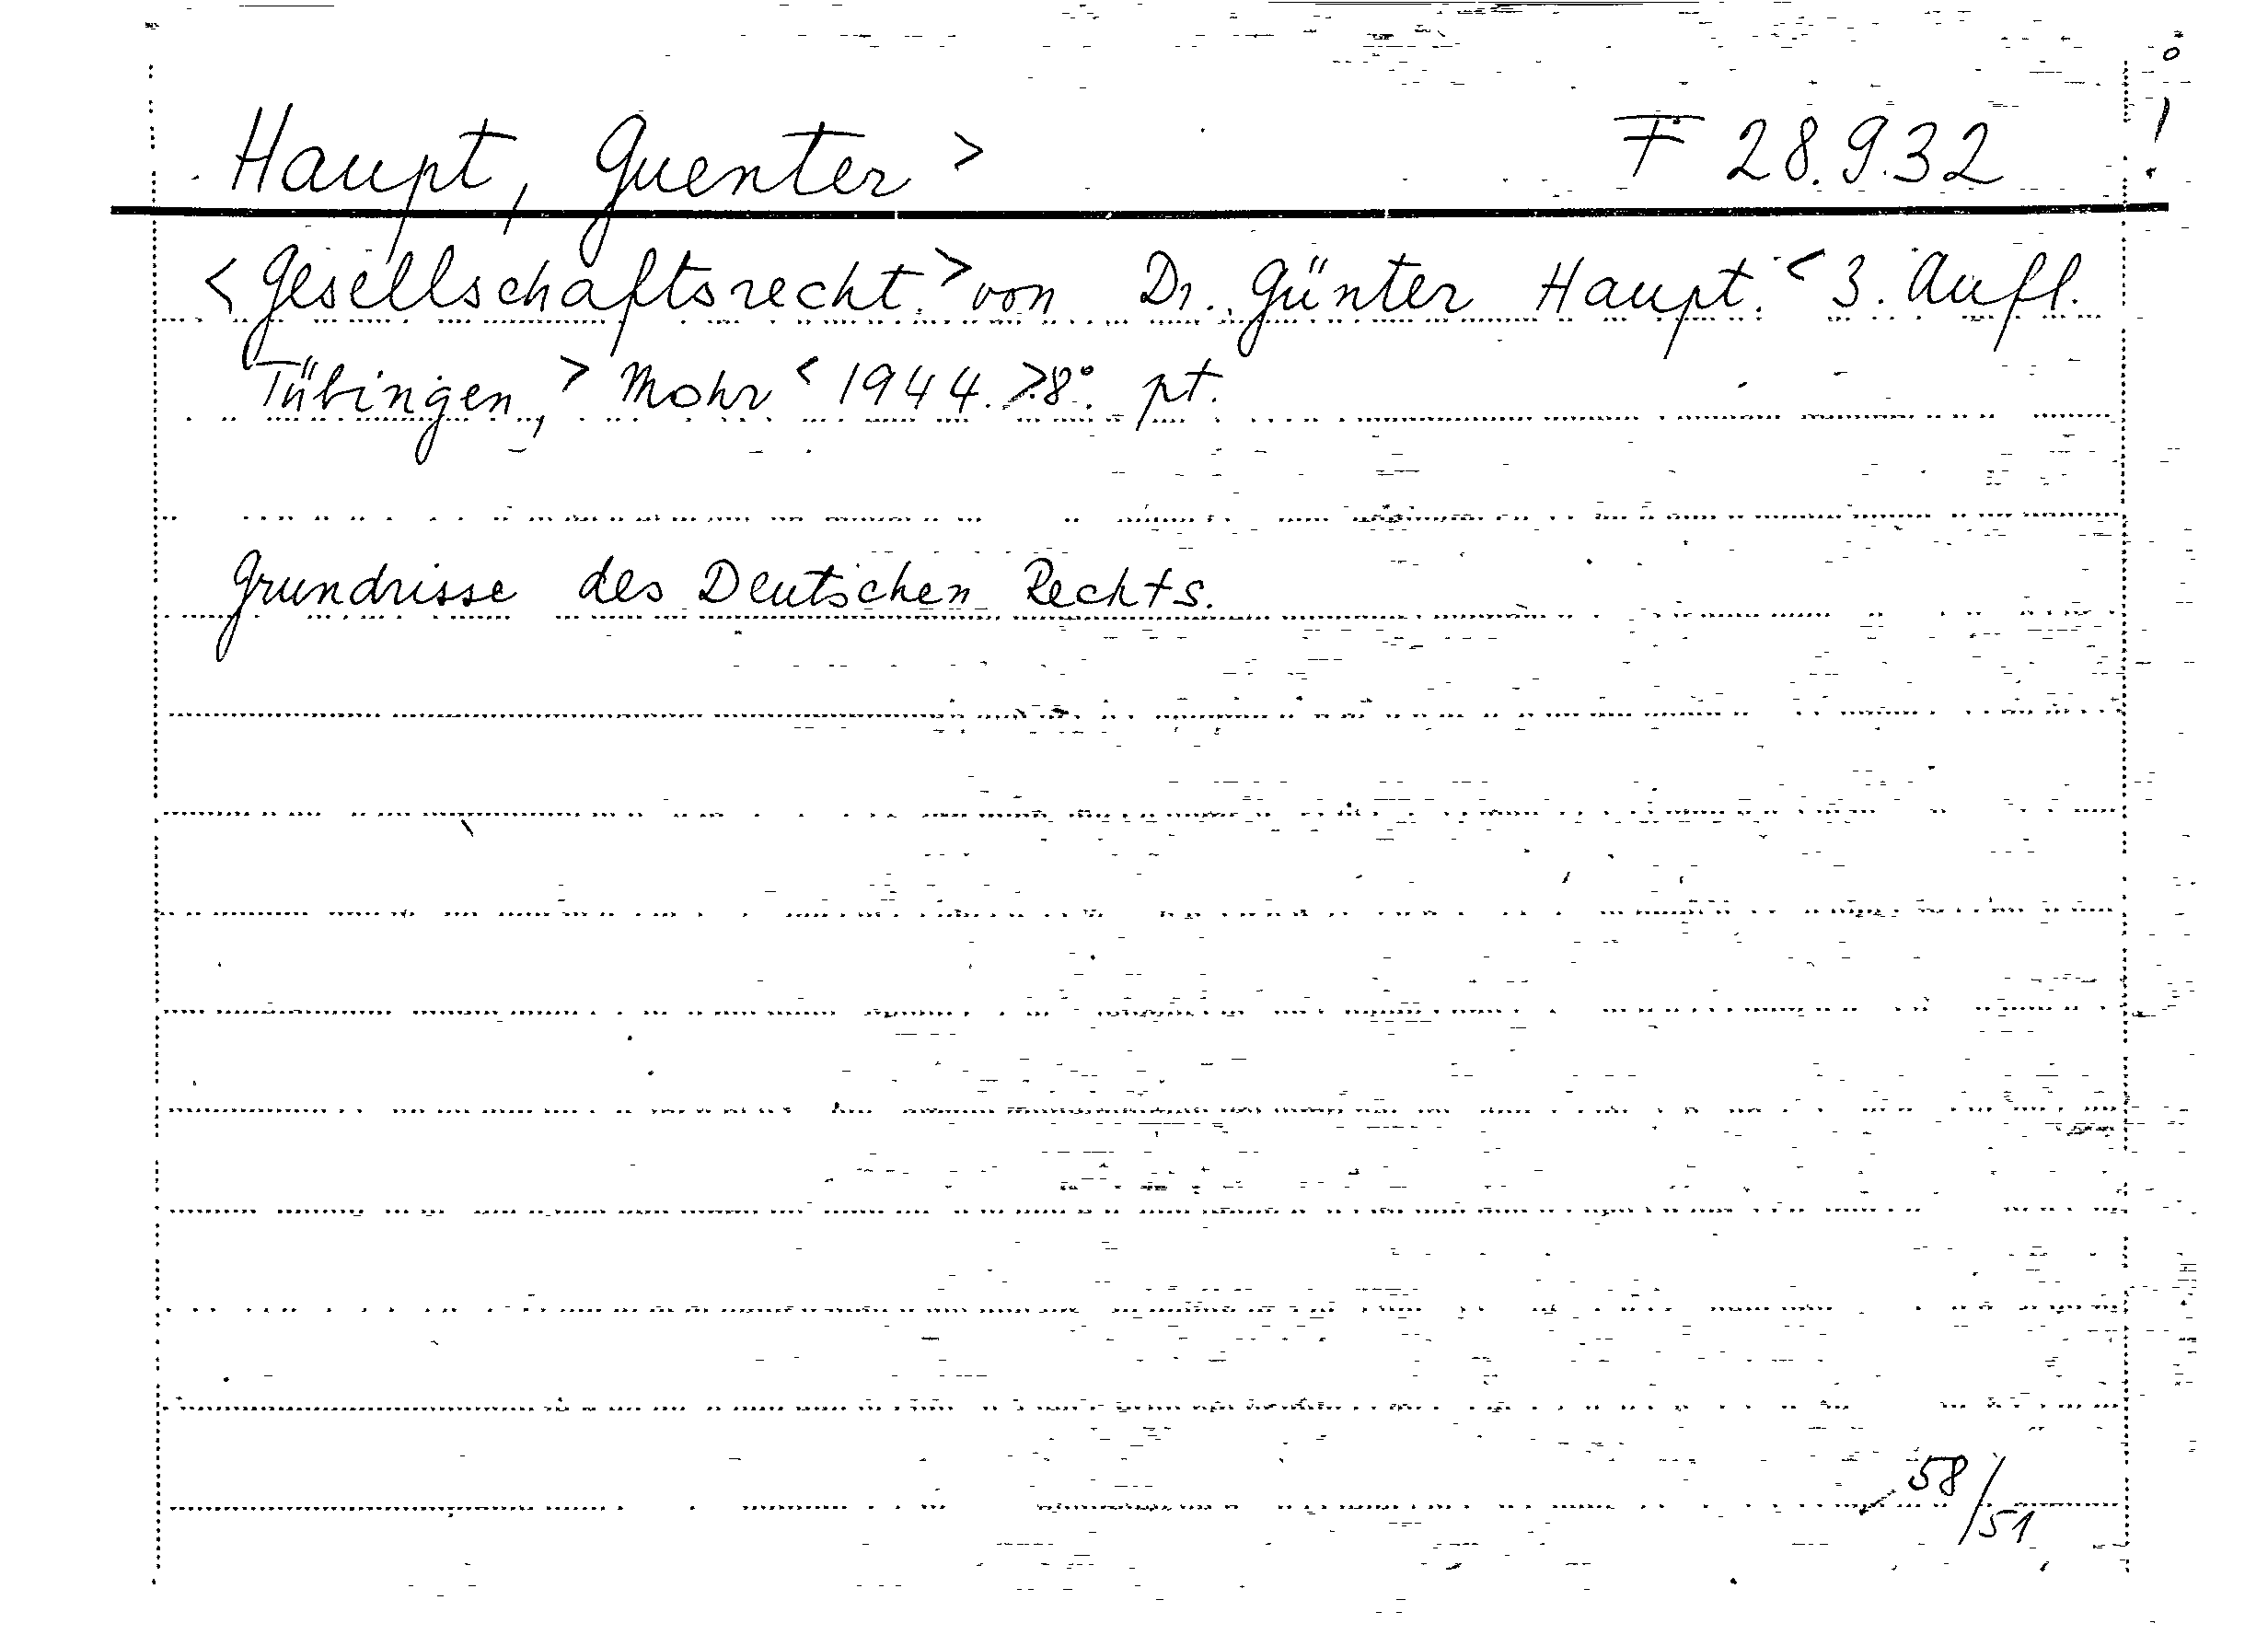 Haupt, Guenter > F 28.9.32 !
< Gesellschaftsrecht. > von Dr. Günter Haupt. < 3. Aufl.
Tübingen, > Mohr < 1944. > 8°. pt.
Grundrisse des Deutschen Rechts.
58/51